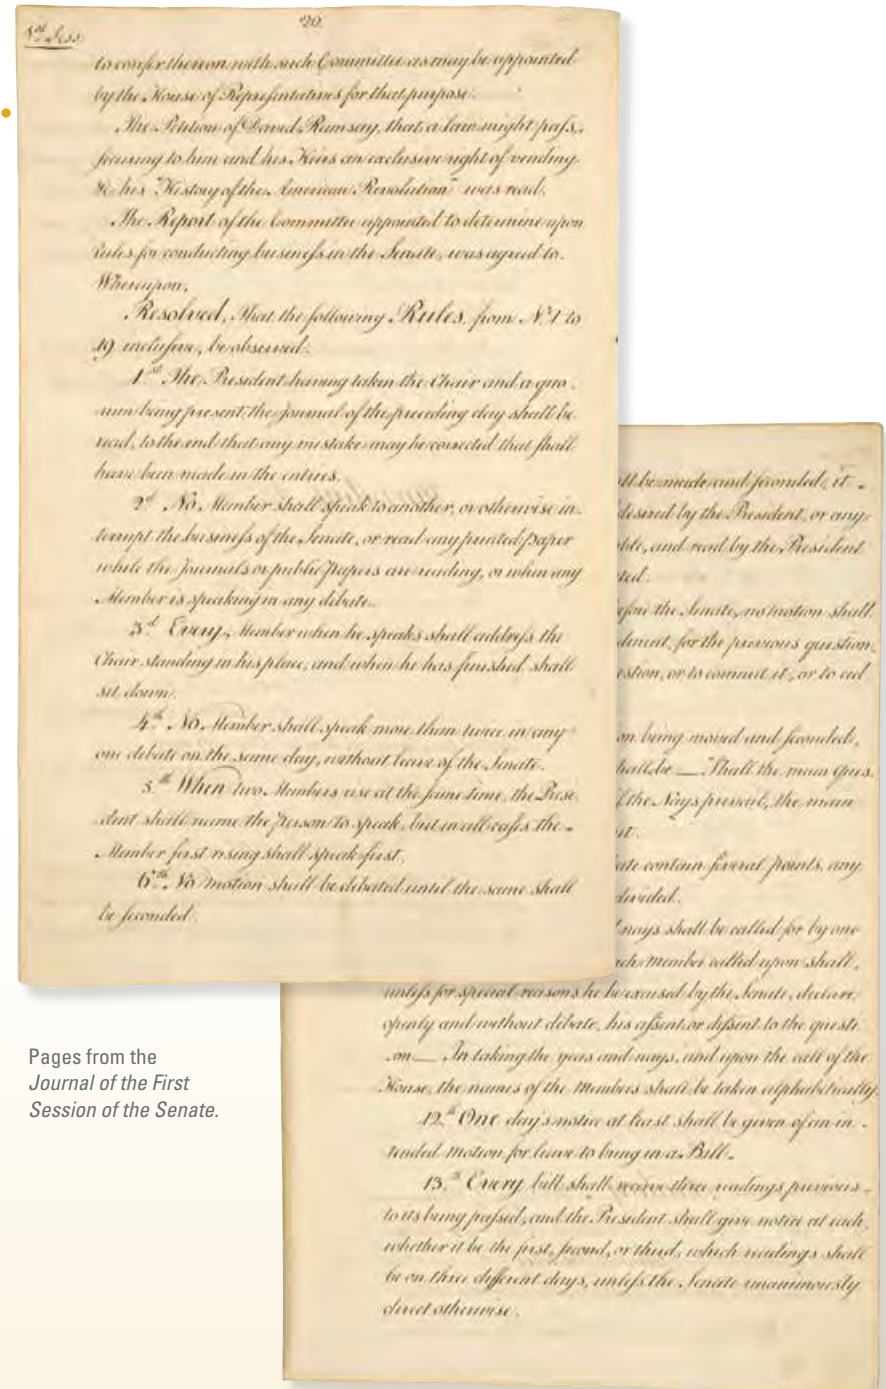 1st Sess.
20.
to confer thereon with such Committee as may be appointed
by the House of Representatives for that purpose.
The Petition of David Ramsay, that a law might pass,
securing to him and his Heirs an exclusive right of vending
&c his "History of the American Revolution" was read.
The Report of the Committee appointed to determine upon
rules for conducting business in the Senate, was agreed to.
Whereupon,
Resolved, That the following Rules, from No. 1 to
19 inclusive, be observed.
1st The President having taken the Chair and a quo-
rum being present, the journal of the preceding day shall be
read, to the end that any mistake may be corrected that shall
have been made in the entries.
2d No Member shall speak to another, or otherwise in-
terrupt the business of the Senate, or read any printed paper
while the Journals or public papers are reading, or when any
Member is speaking in any debate.
3d Every Member when he speaks shall address the
Chair standing in his place, and when he has finished shall
sit down.
4th No Member shall speak more than twice in any
one debate on the same day, without leave of the Senate.
5th When two Members rise at the same time, the Presi-
dent shall name the person to speak, but in all cases the
Member first rising shall speak first.
6th No motion shall be debated until the same shall
be seconded.
ll be made and seconded, it
desired by the President, or any
ble, and read by the President
ted.
efore the Senate, no motion shall
dment, for the previous question,
estion, or to commit it, or to
on being moved and seconded,
hall be — "Shall the main ques-
f the Nays prevail, the main
ut.
ate contain several points, any
divided.
nays shall be called for by one
ach Member called upon shall,
unless for special reasons he be excused by the Senate, declare
openly and without debate, his assent or dissent to the questi
on — In taking the yeas and nays, and upon the call of the
House, the names of the Members shall be taken alphabetically.
12th One day's notice at least shall be given of an in-
tended motion for leave to bring in a Bill.
13th Every bill shall receive three readings previous
to its being passed, and the President shall give notice at each,
whether it be the first, second, or third, which readings shall
be on three different days, unless the Senate unanimously
direct otherwise.
Pages from the
Journal of the First
Session of the Senate.